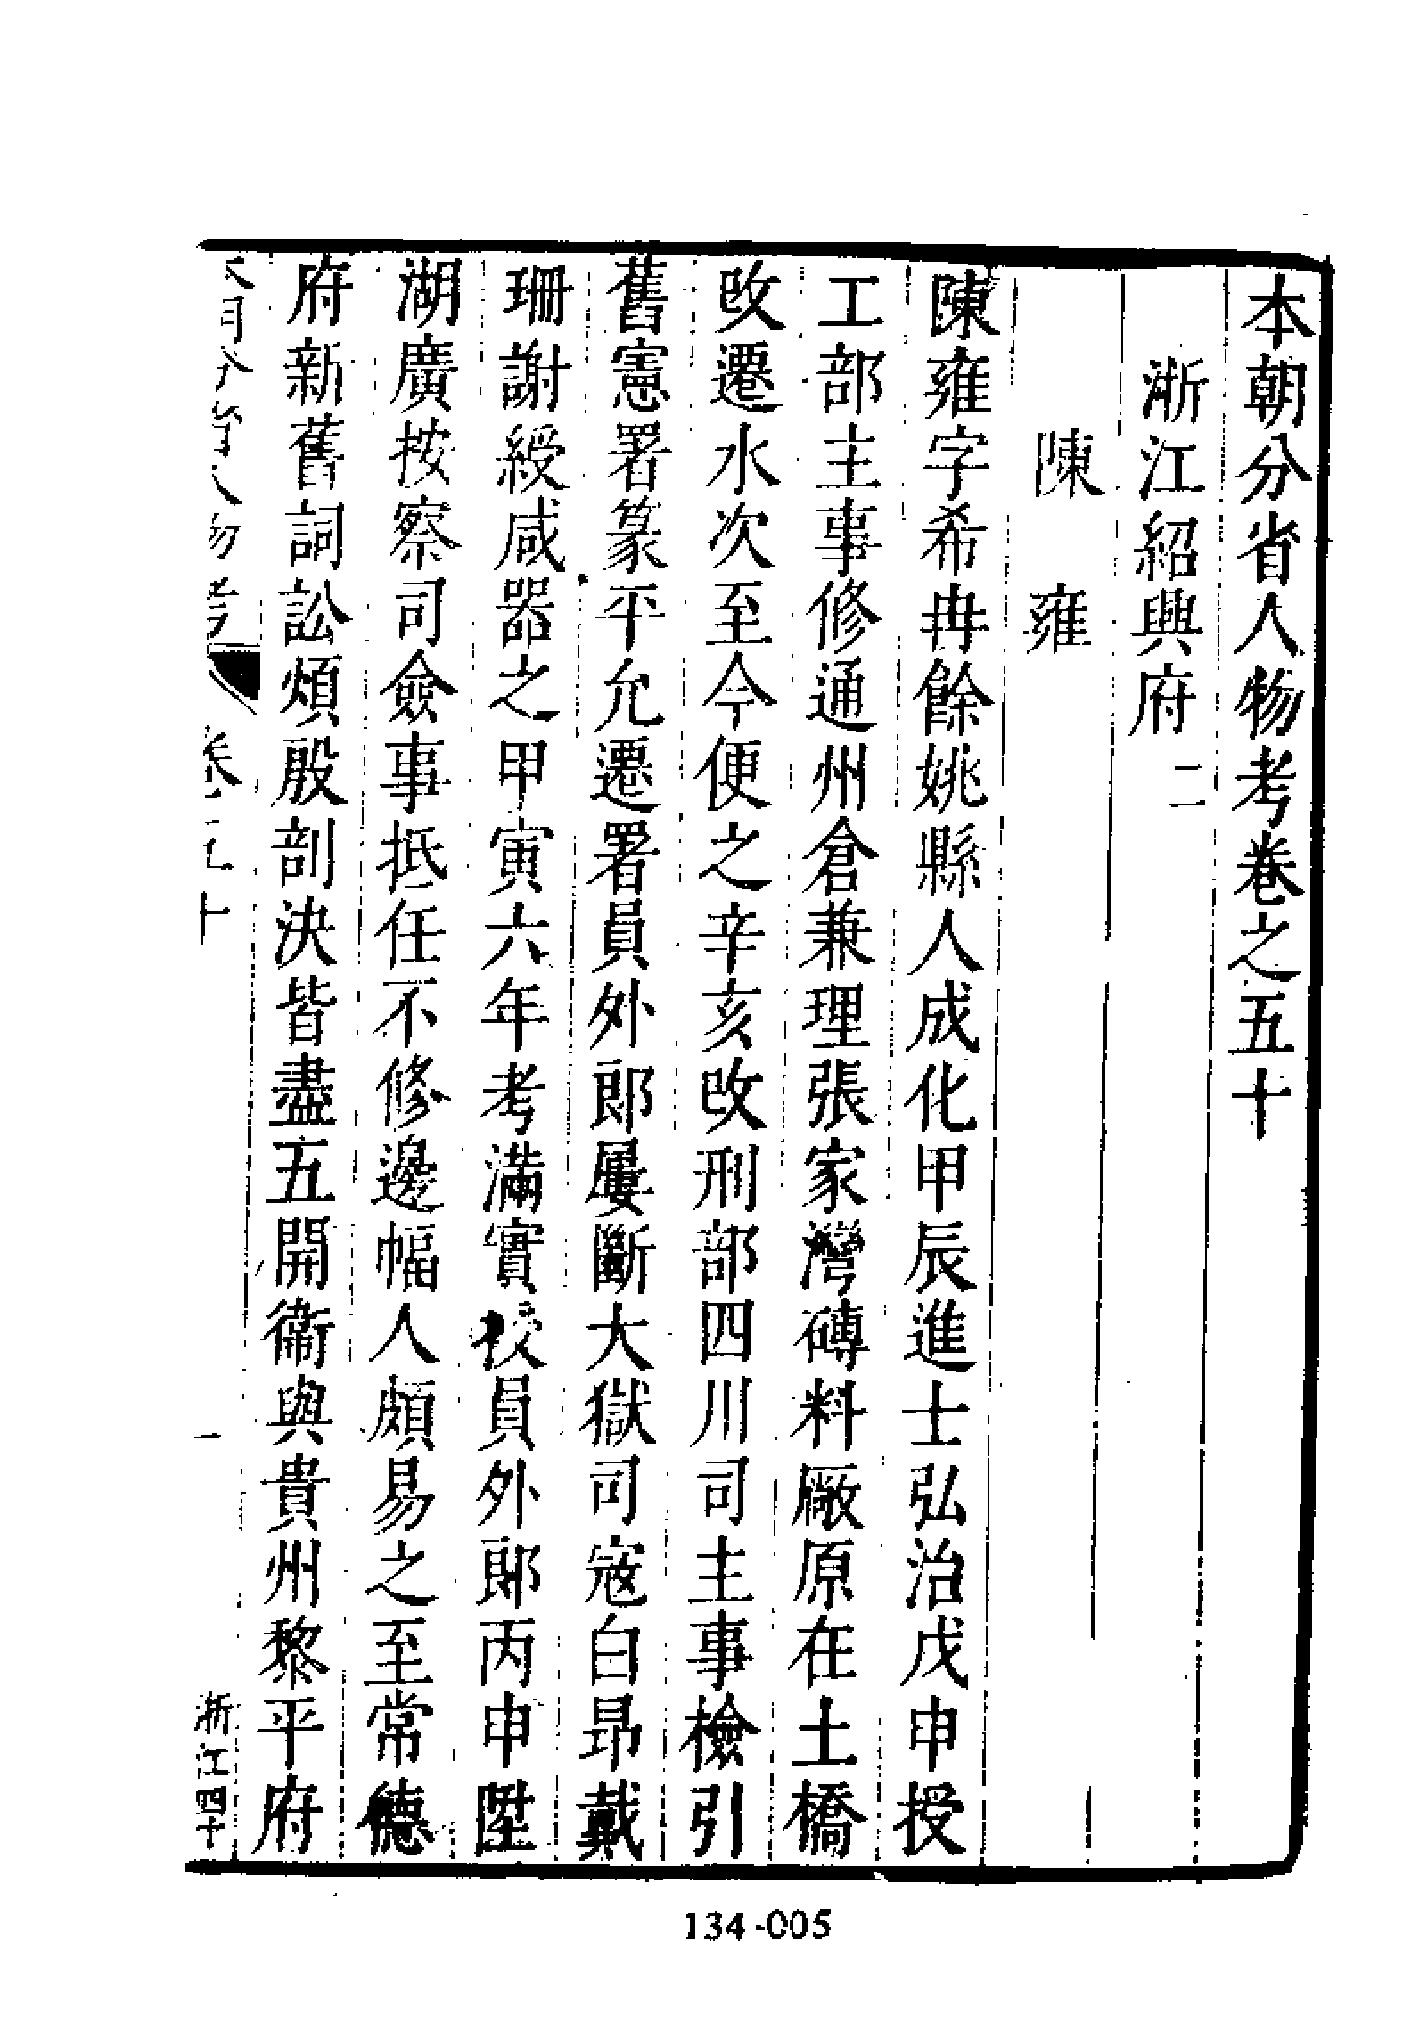 本朝分省人物考卷之五十
浙江紹興府二
陳雍
陳雍字希冉餘姚縣人成化甲辰進士弘治戊申授
工部主事修通州倉兼理張家灣磚料厰原在土橋
改遷水次至今便之辛亥改刑部四川司主事檢引
舊憲署篆平允遷署員外郎屢斷大獄司寇白昂戴
珊謝綬咸器之甲寅六年考滿實授員外郎丙申陞
湖廣按察司僉事抵任不修邊幅人頗易之至常德
府新舊詞訟煩殷剖決皆盡五開衞與貴州黎平府
本朝分省人物考 卷五十 一 浙江四十
134-005